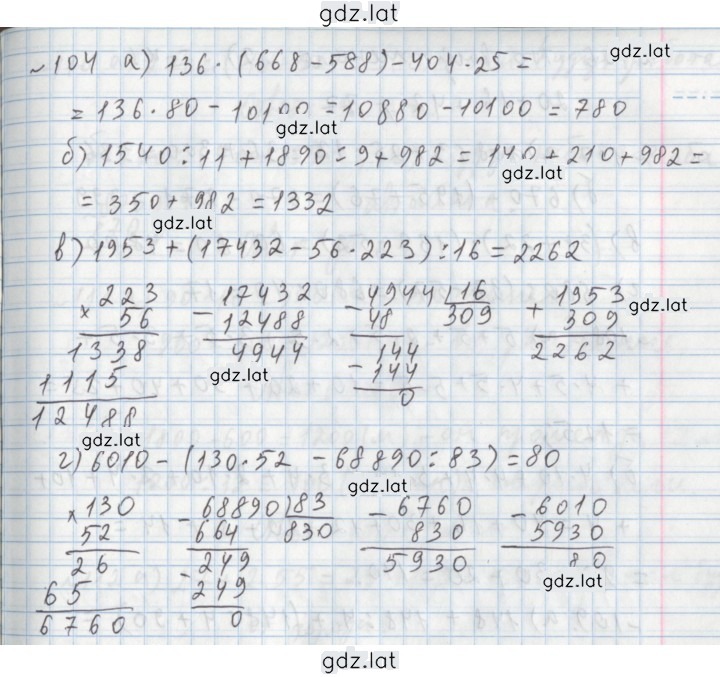 gdz.lat
№104 а) 136·(668-588)-404·25=
gdz.lat
=136·80-10100=10880-10100=780
gdz.lat
б) 1540:11+1890:9+982=140+210+982=
gdz.lat
=350+982=1332
gdz.lat
в) 1953+(17432-56·223):16=2262
×223 -17432 -4944|16 +1953
56 12488 48 309 309
gdz.lat
1338 4944 144 2262
1115 gdz.lat -144
12488 0
gdz.lat
г) 6010-(130·52-68890:83)=80
gdz.lat
×130 -68890|83 -6760 -6010
52 664 830 830 5930
26 -249 5930 80
65 249 gdz.lat
6760 0
gdz.lat